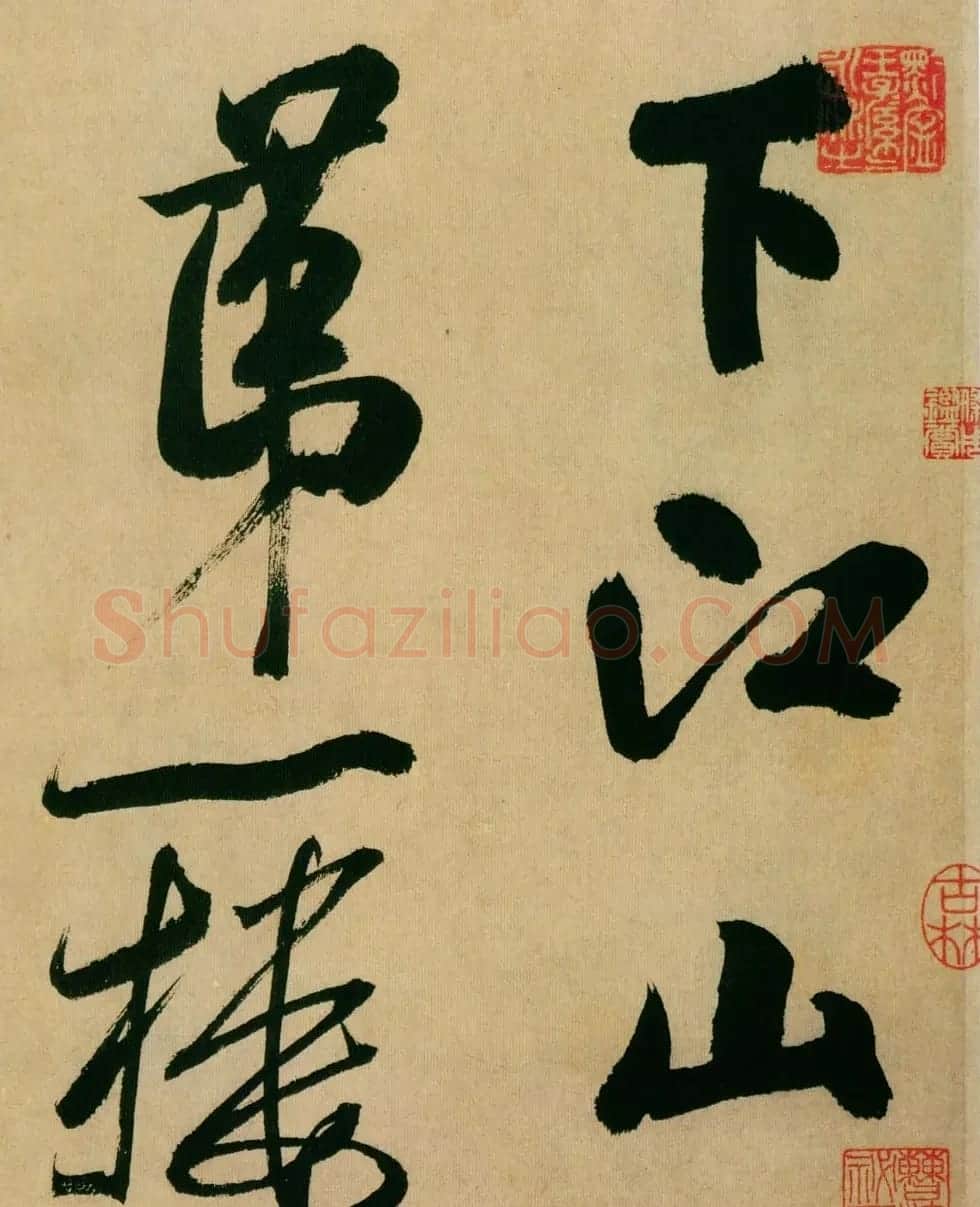 下江山
第一楼
Shufaziliao.COM
吉林